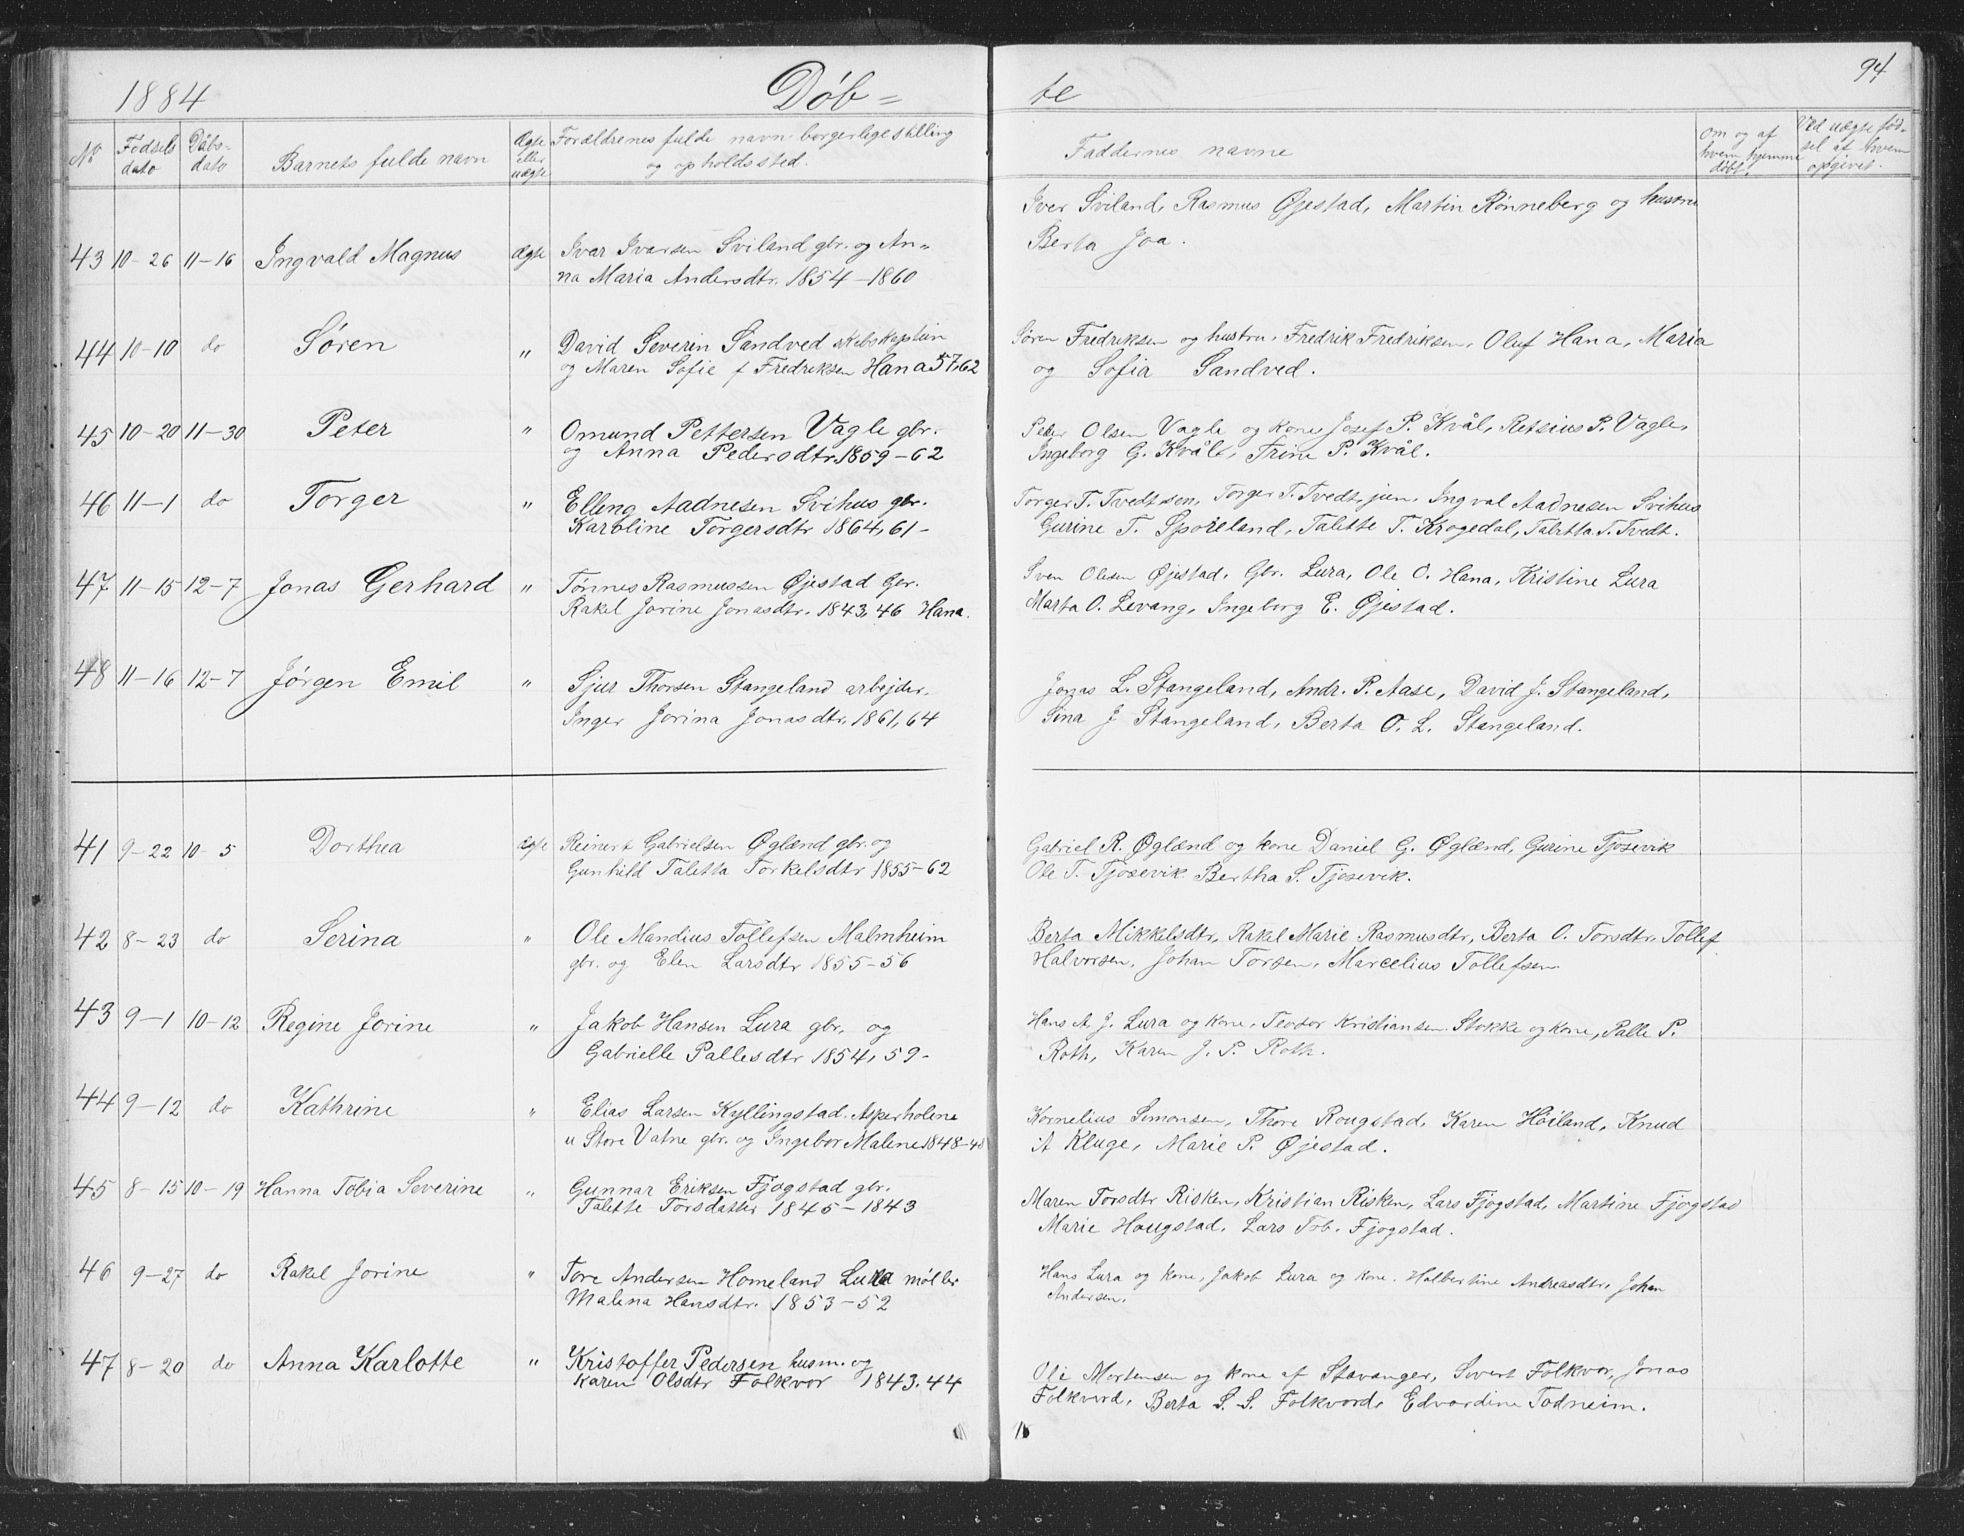 1884 Döb= te 94
No Födsels dato Dåbs- dato Barnets fulde navn Ægte eller uægte Forældrenes fulde navn borgerlige stilling og opholdssted. Faddernes navne Om og af hvem hjemme döbt. Ved uægte fød- sel at hvem opgivet.
Iver Sviland, Rasmus Øjestad, Martin Rønneberg og hustru
43 10-26 11-16 Ingvald Magnus Ægte Ivar Ivarsen Sviland gbr. og An= Berta Joa.
na Maria Andersdtr. 1854-1860
44 10-10 do Søren " David Severin Sandved skibskaptein Søren Fredriksen og hustru, Fredrik Fredriksen, Oluf Hana, Maria
og Maren Sofie f Fredriksen Hana 57,62 og Sofia Sandved.
45 10-20 11-30 Peter " Omund Pettersen Vagle gbr. Peder Olsen Vagle og kone Josef P. Kvål, Retsius P. Vagle,
og Anna Pedersdtr. 1859-62 Ingeborg G. Kvåle, Trine P. Kvål.
46 11-1 do Torger " Elling Aadnesen Svihus gbr. Torger T. Tvedtsen, Torger T. Tvedt, jun. Ingval Aadnesen Svihus
Karoline Torgersdtr 1864,61- Gurine T. Spørland, Talette T. Krogedal, Talitta T. Tvedt.
47 11-15 12-7 Jonas Gerhard " Tønnes Rasmussen Øjestad Gbr. Sven Olesen Øjestad, Gbr. Lura, Ole O. Hana, Kristine Lura
Rakel Jorine Jonasdtr. 1843,46 Hana. Marta O. Levang, Ingeborg E. Øjestad.
48 11-16 12-7 Jørgen Emil " Sjur Thorsen Stangeland arbejder. Jonas L. Stangeland, Andr. P. Aase, David J. Stangeland,
Inger Jorina Jonasdtr. 1861,64 Sina J Stangeland, Berta O. L. Stangeland.
41 9-22 10-5 Dorthea Ægte Reinert Gabrielsen Øglænd gbr. og Gabriel R. Øglænd og kone Daniel G. Øglænd, Gurine Tjosevik
Gunhild Taletta Torkelsdtr 1855-62 Ole T. Tjosevik Bertha S. Tjosevik.
42 8-23 do Serina " Ole Mandius Tollefsen Malmheim Berta Mikkelsdtr, Rakel Marie Rasmusdtr, Berta O. Torsdtr. Tollef
gbr. og Elen Larsdtr 1855-56 Halvorsen, Johan Torsen, Marcelius Tollefsen.
43 9-1 10-12 Regine Jorine " Jakob Hansen Lura gbr. og Hans A. J. Lura og kone, Teodor Kristiansen Stokke og kone, Palle P.
Gabrielle Pallesdtr 1854,59- Roth, Karen J. P. Roth.
44 9-12 do Kathrine " Elias Larsen Kyllingstad Asperholene Kornelius Simonsen, Thore Rougstad, Karen Høiland, Knud
u Store Vatne gbr. og Ingebor Malene 1848-48 A Kluge, Marie P. Øjestad.
45 8-15 10-19 Hanna Tobia Severine " Gunnar Eriksen Fjogstad gbr. Maren Torsdtr Risken, Kristian Risken, Lars Fjogstad, Martine Fjogstad
Talette Torsdatter 1845-1843 Marie Hougstad, Lars Tob. Fjogstad.
46 9-27 do Rakel Jorine " Tore Andersen Homeland Lura møller Hans Lura og kone, Jakob Lura og kone. Halbertine Andreasdtr, Johan
Malena Hansdtr. 1853-52 Andersen.
47 8-20 do Anna Karlotte " Kristoffer Pedersen husm. og Ole Mortensen og kone af Stavanger, Sivert Folkvor, Jonas
Karen Olsdtr Folkvor 1843.44 Folkvord, Berta S. S. Folkvord, Edvardine Todneim.